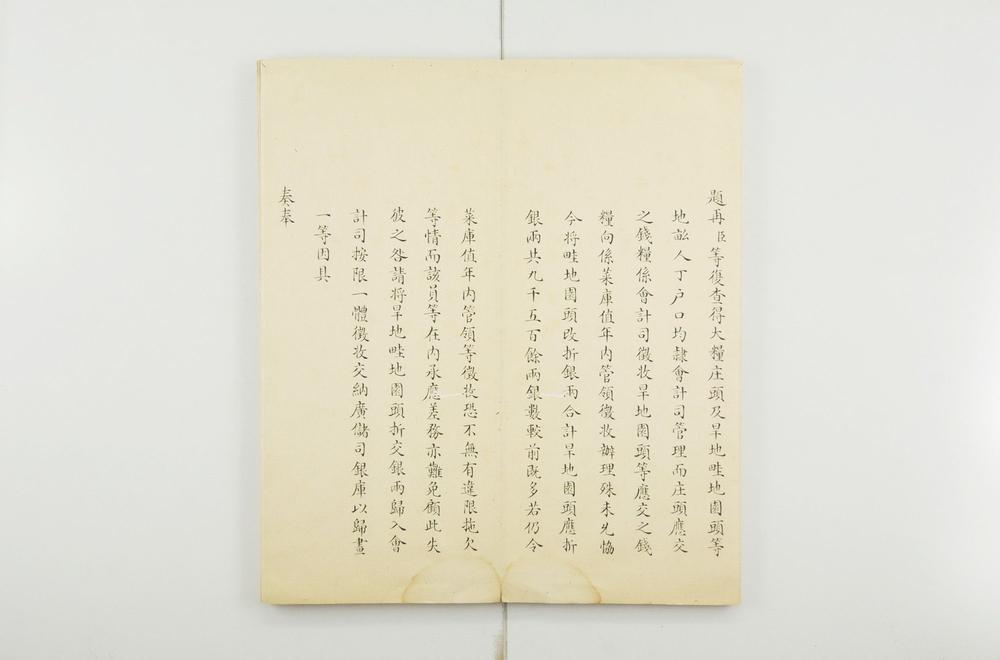 題再臣等復查得大糧庄頭及旱地畦地園頭等
地畝人丁户口均隷會計司管理而庄頭應交
之錢糧係會計司徵收旱地園頭等應交之錢
糧向係菜庫值年内管領徵收辦理殊未允恊
今將畦地園頭改折銀兩合計旱地園頭應折
銀兩共九千五百餘兩銀數較前既多若仍令
菜庫值年内管領等徵收恐不無有違限拖欠
等情而該員等在内承應差務亦難免顧此失
彼之咎請將旱地畦地園頭折交銀兩歸入會
計司按限一體徵收交納廣儲司銀庫以歸畫
一等因具
奏奉